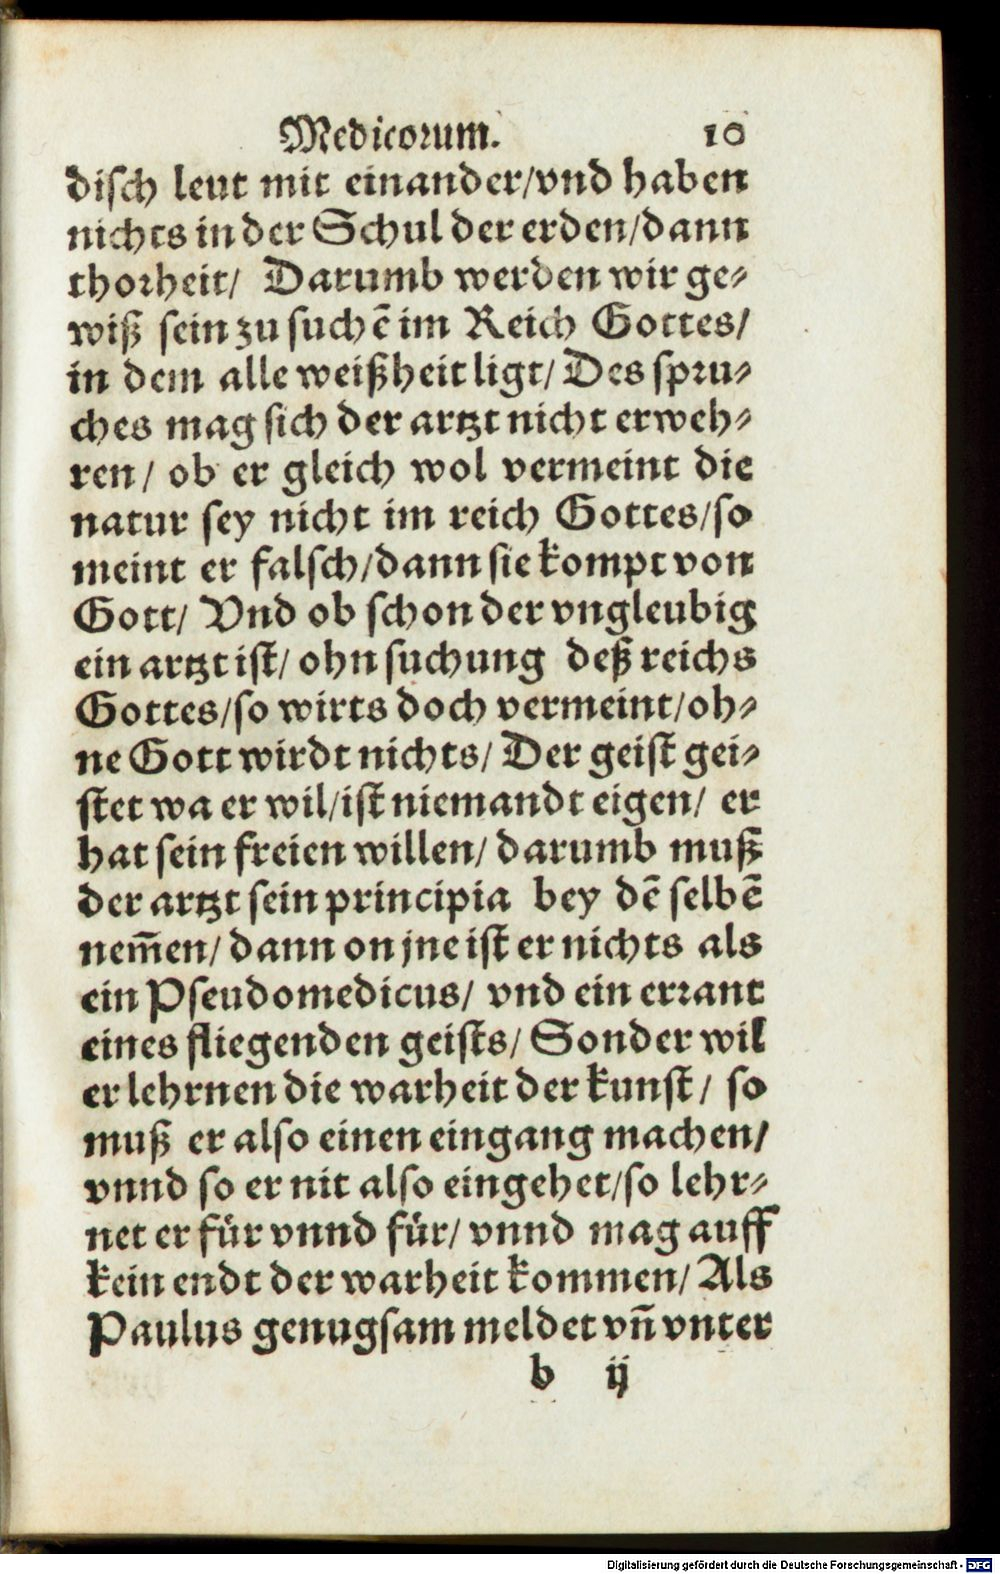 Medicorum. 10
disch leut mit einander/vnd haben
nichts in der Schul der erden/dann
thorheit/ Darumb werden wir ge⸗
wiß sein zu suchē im Reich Gottes/
in dem alle weißheit ligt/ Des spru⸗
ches mag sich der artzt nicht erweh⸗
ren/ ob er gleich wol vermeint die
natur sey nicht im reich Gottes/so
meint er falsch/dann sie kompt von
Gott/ Vnd ob schon der vngleubig
ein artzt ist/ ohn suchung deß reichs
Gottes/so wirts doch vermeint/oh⸗
ne Gott wirdt nichts/ Der geist gei⸗
stet wa er wil/ist niemandt eigen/ er
hat sein freien willen/ darumb muß
der artzt sein principia bey dē selbē
nem̄en/ dann on jne ist er nichts als
ein Pseudomedicus/ vnd ein errant
eines fliegenden geists/ Sonder wil
er lehrnen die warheit der kunst/ so
muß er also einen eingang machen/
vnnd so er nit also eingehet/so lehr⸗
net er für vnnd für/ vnnd mag auff
kein endt der warheit kommen/ Als
Paulus genugsam meldet vn̄ vnter
b ij
Digitalisierung gefördert durch die Deutsche Forschungsgemeinschaft - DFG